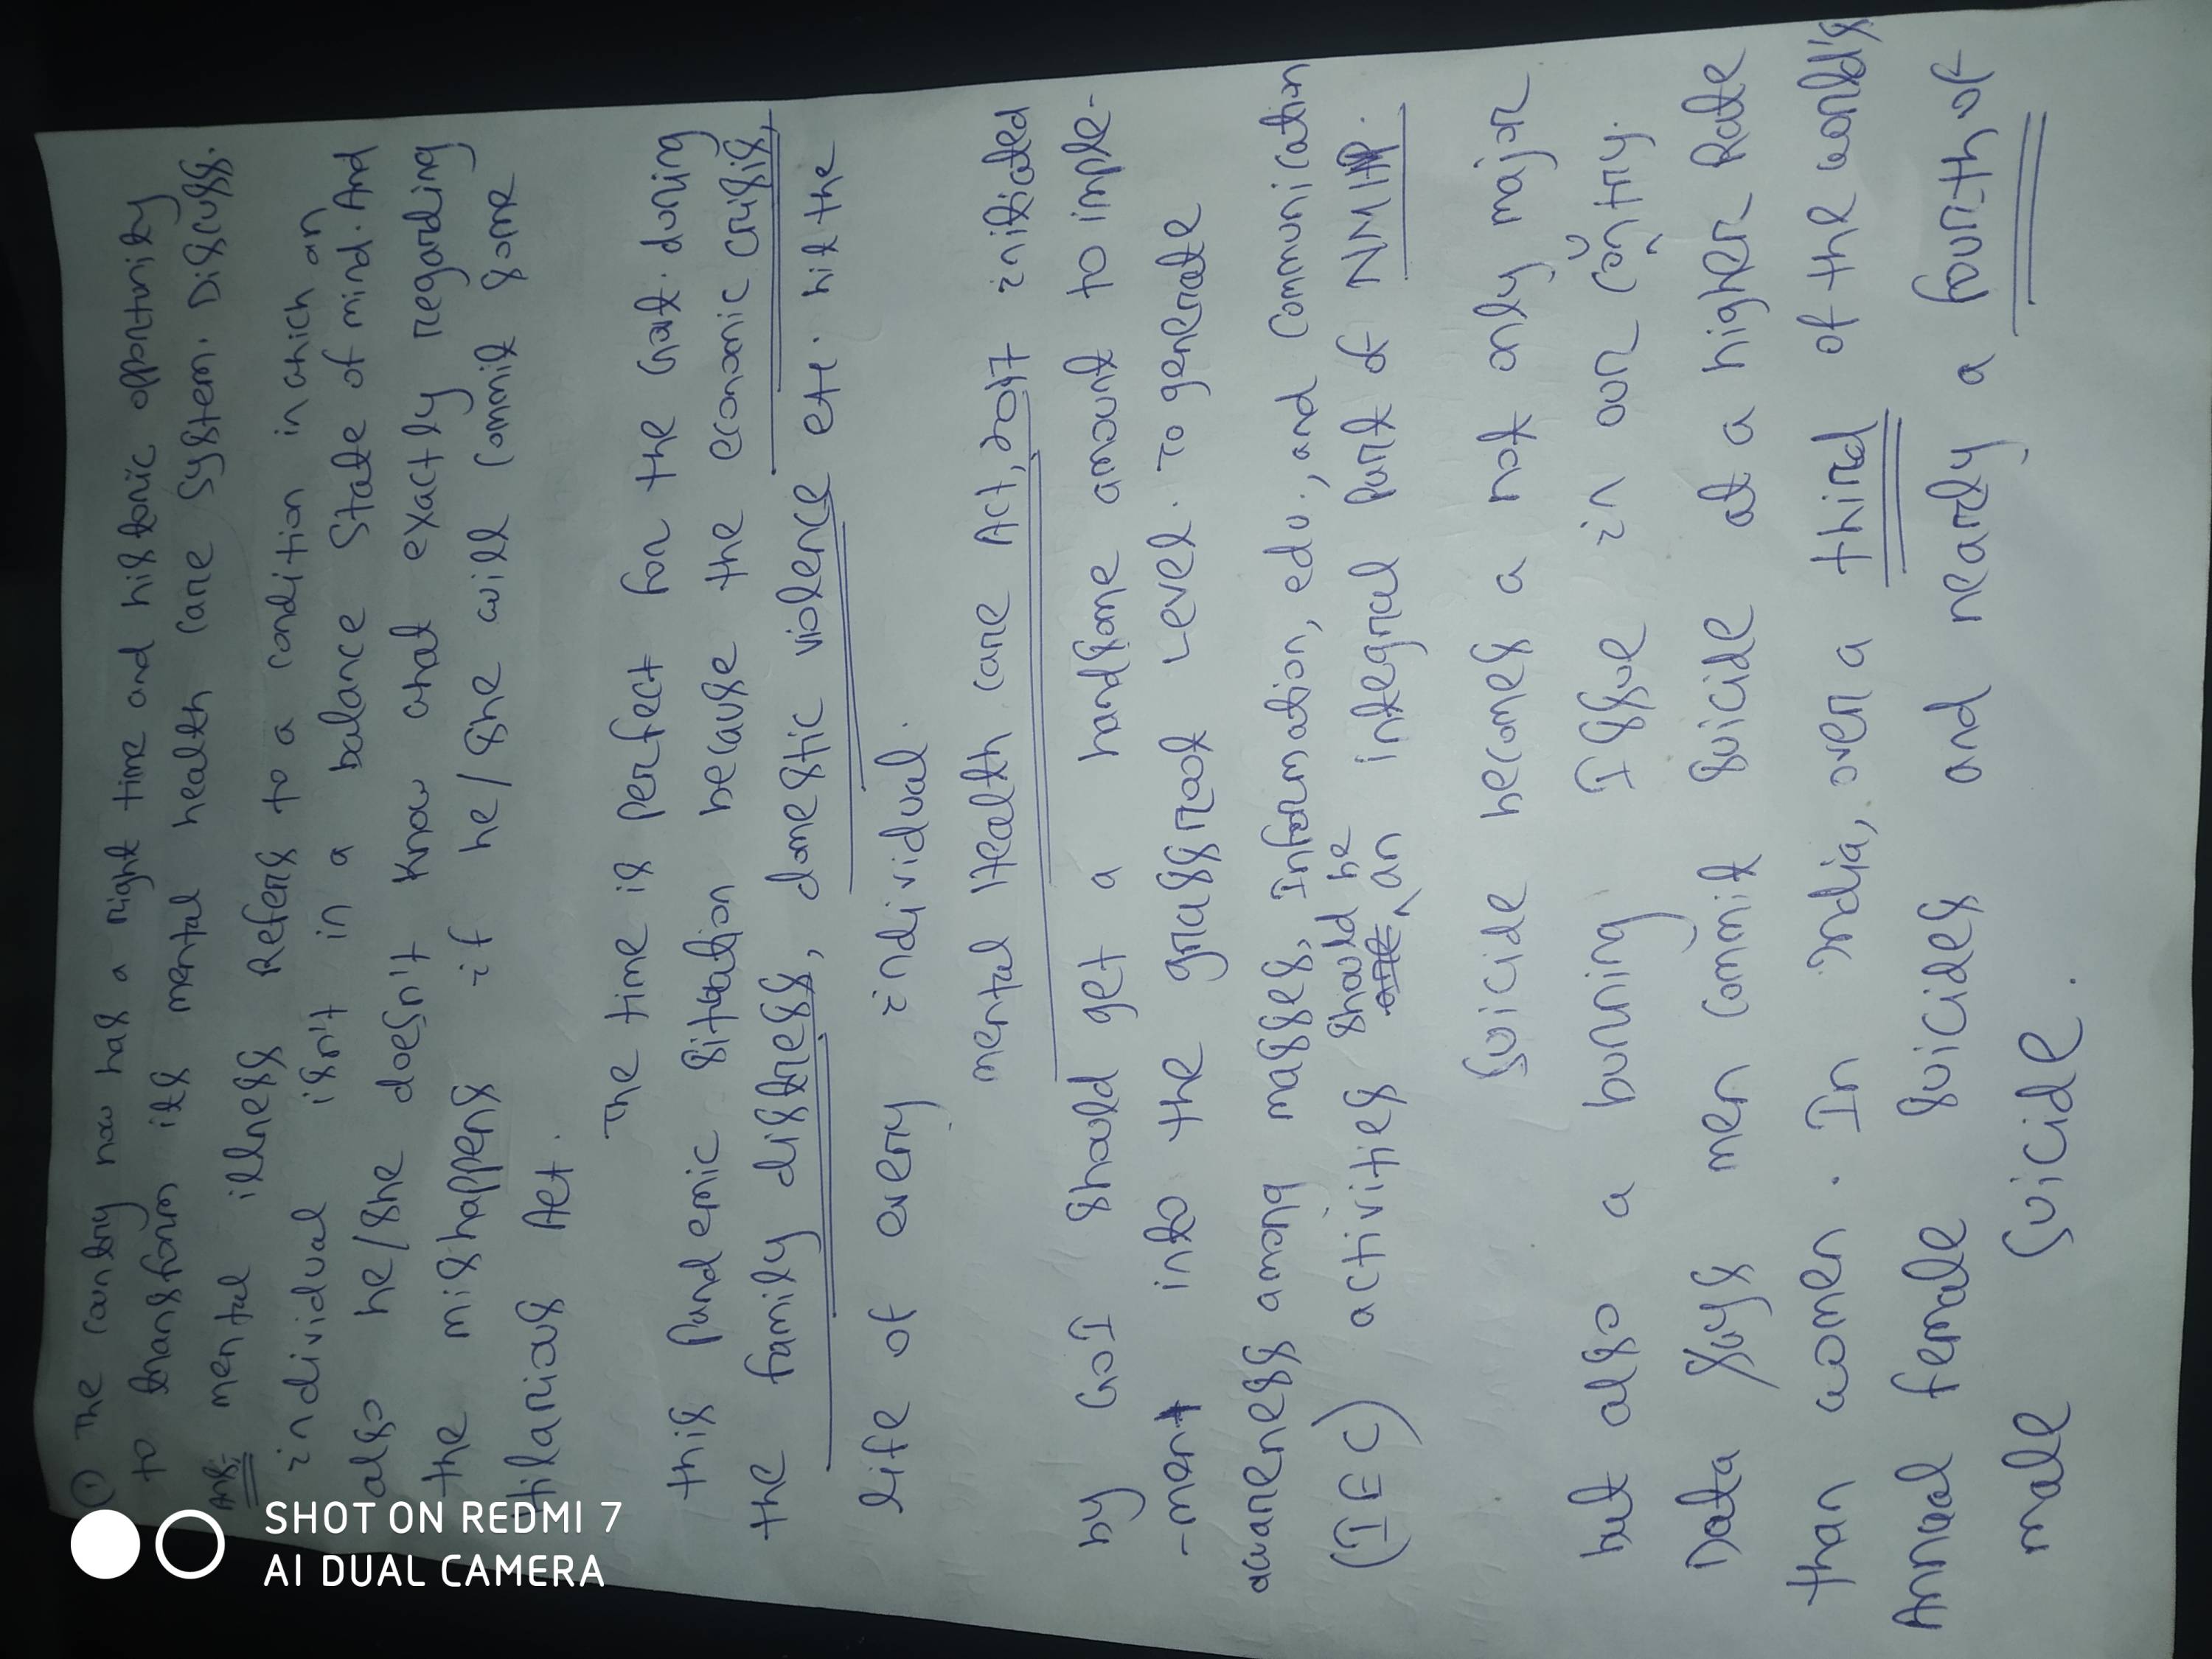 ① The country now has a right time and historic opportunity
to transform its mental health care system. Discuss.
Ans- mental illness Refers to a condition in which an
individual isn't in a balance State of mind. And
also he/she doesn't know what exactly regarding
the mishappens if he/she will commit some
hilarious Act.
The time is perfect for the Govt. during
this Pandemic situation because the economic crisis,
the family distress, domestic violence etc. hit the
life of every individual.
mental Health care Act, 2017 initiated
by GoI should get a handsome amount to imple-
-ment into the grassroot Level. To generate
awareness among masses, Information, edu., and communication
(IEC) activities should be an integral Part of NMHP.
Suicide becomes a not only major
but also a burning Issue in our country.
Data says men commit suicide at a higher Rate
than women. In India, over a third of the world's
Annual female suicides and nearly a fourth of
male suicide.
SHOT ON REDMI 7
AI DUAL CAMERA